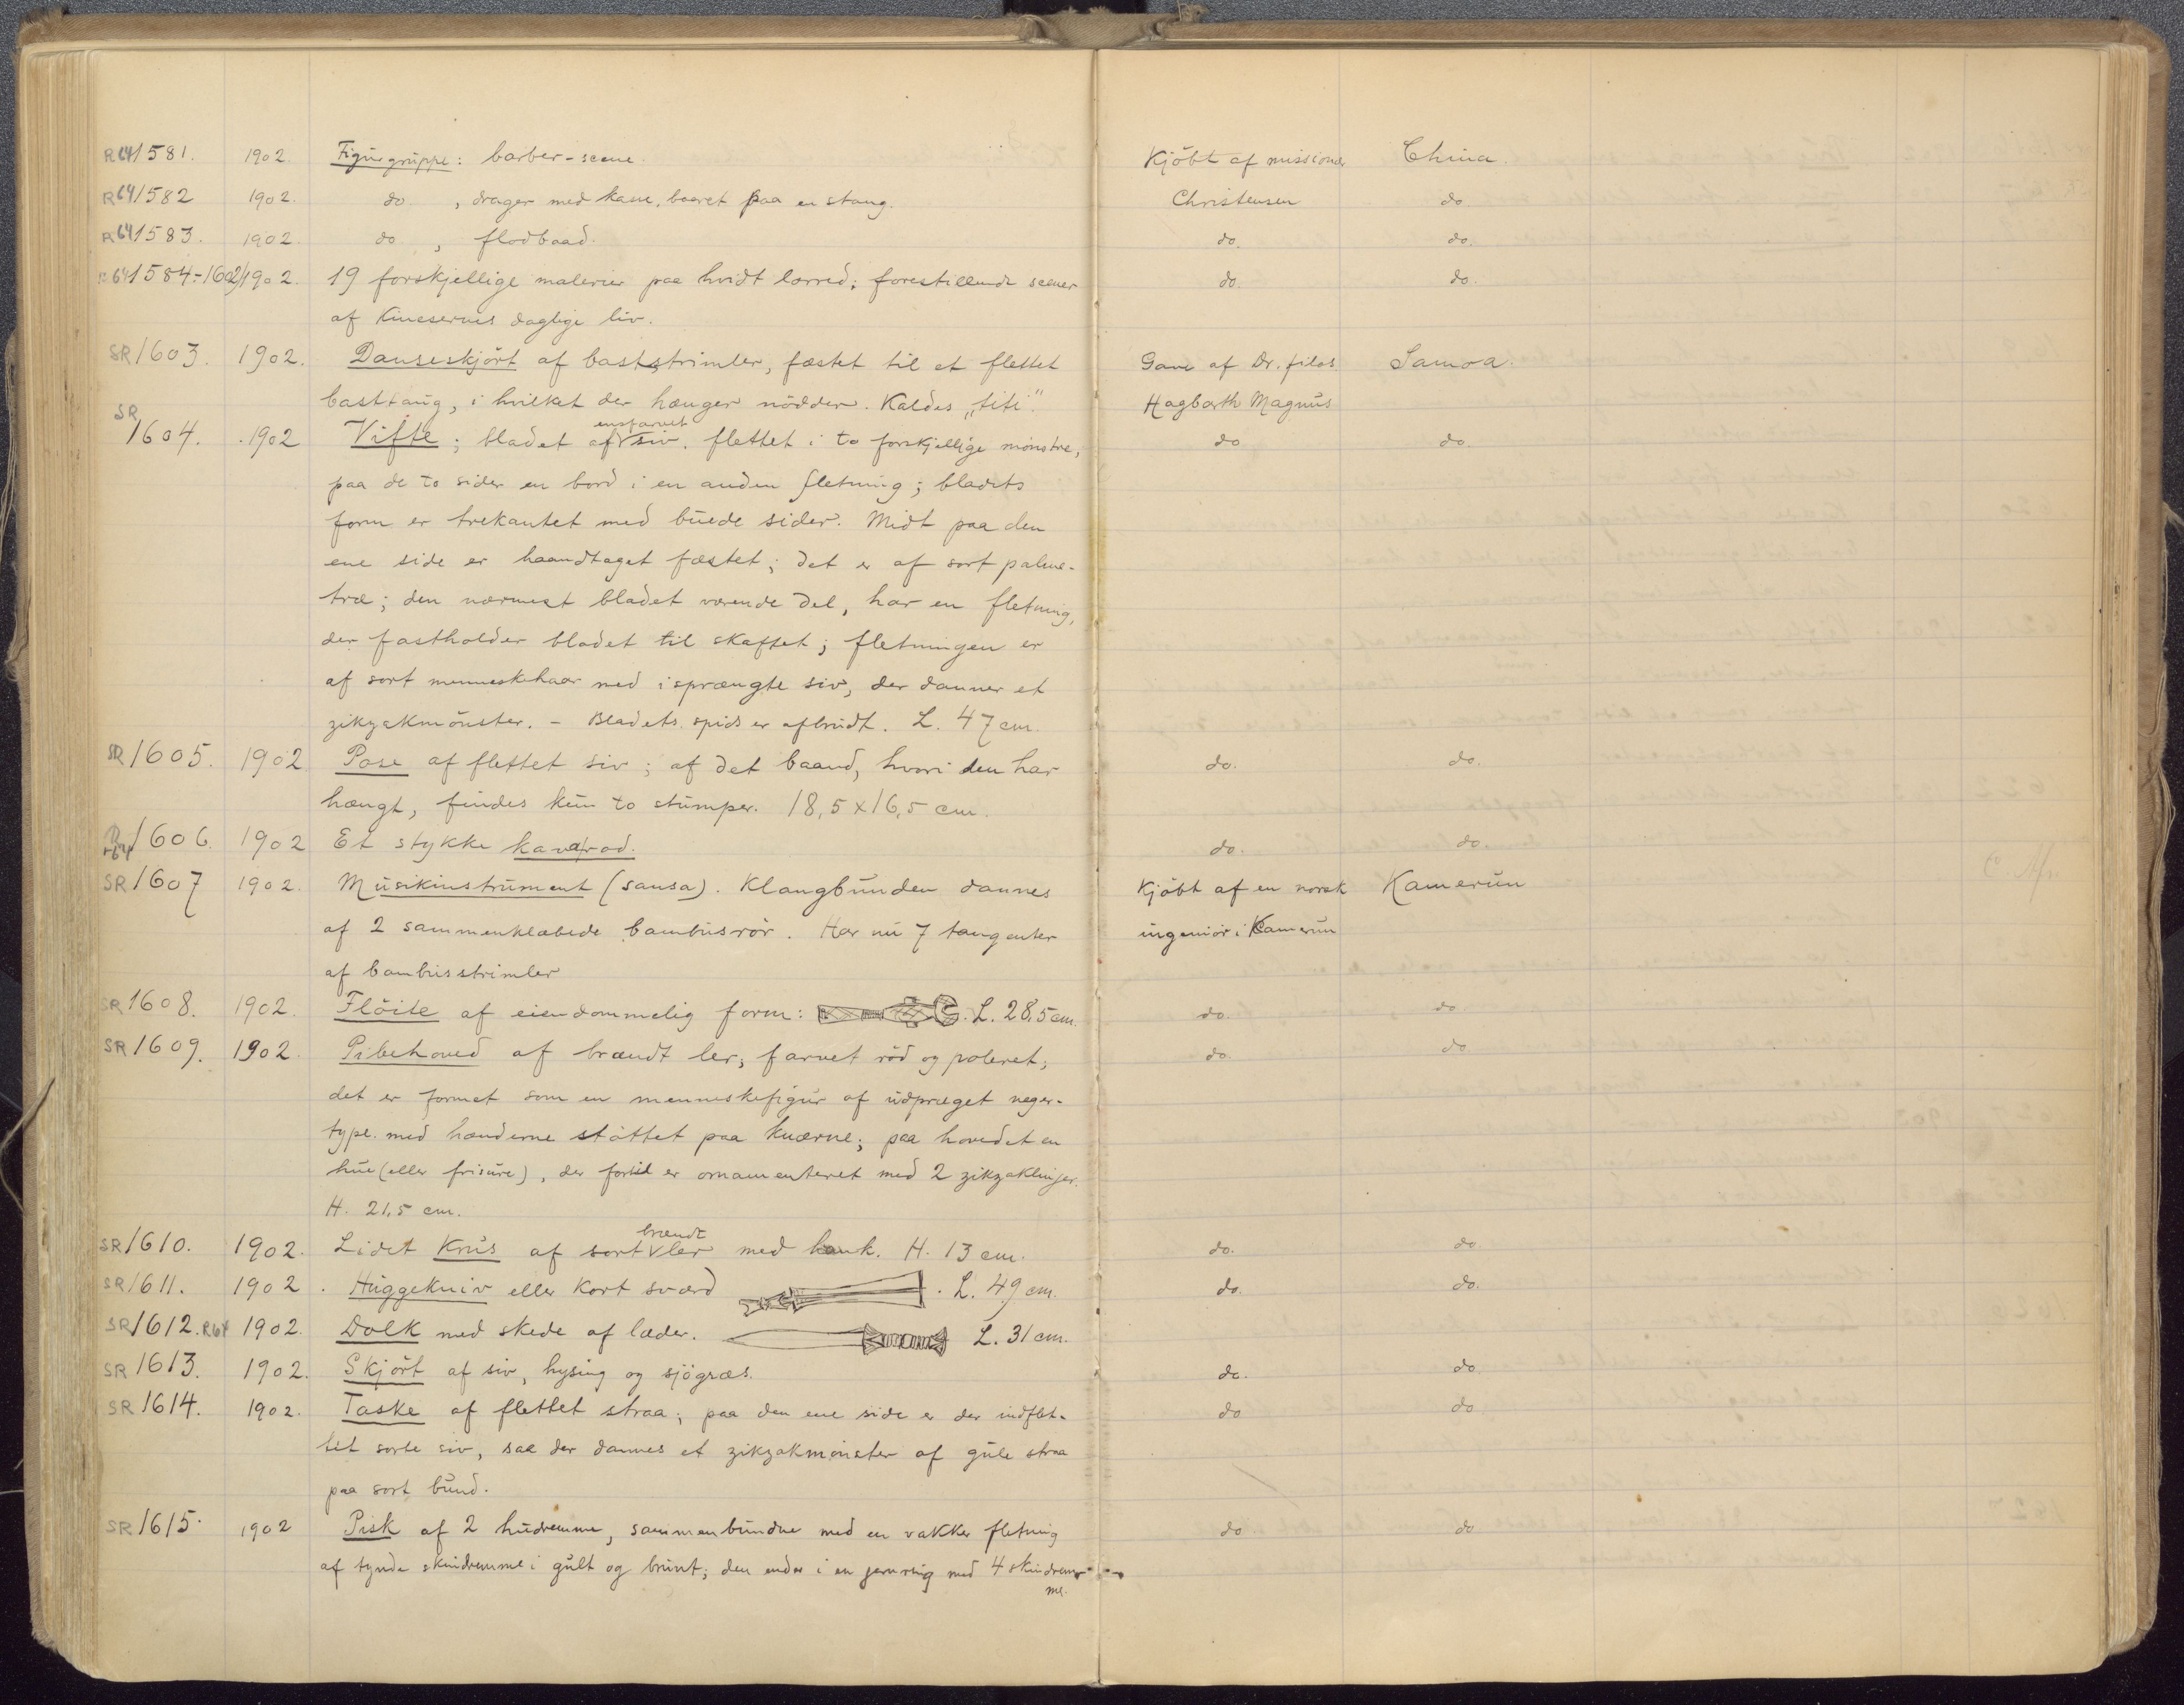 R64 1581. 1902. Figurgruppe: barber-scene. Kjöbt af missionær China.
R64 1582 1902. do , drager med kane, baaret paa en stang. Christensen do
R64 1583. 1902. do , flodbaad. do. do.
R64 1584.-1602) 1902. 19 forskjellige malerier paa hvidt lærred; forestillende scener do. do.
af Kinesernes daglige liv.
SR 1603. 1902. Danseskjört af baststrimler, fæstet til et flettet Gave af Dr. filos Samoa.
basttaug, i hvilket der hænger nödder. Kaldes „titi". Hagbarth Magnus
SR 1604. 1902 Vifte; bladet af ensfarvet siv. flettet i to forskjellige mönstre, do do.
paa de to sider en bord i en anden fletning; bladets
form er trekantet med buede sider. Midt paa den
ene side er haandtaget fæstet; det er af sort palme-
træ; den nærmest bladet værende del, har en fletning,
der fastholder bladet til skaftet; fletningen er
af sort menneskehaar med isprængte siv, der danner et
zikzakmönster. - Bladets spids er afbrudt. L. 47 cm.
SR 1605. 1902 Pose af flettet siv; af det baand, hvori den har do. do.
hængt, findes kun to stumper. 18,5 x 16,5 cm.
R64 1606. 1902 Et stykke kavarod. do. do.
SR 1607 1902. Musikinstrument (sansa). Klangbunden dannes Kjöbt af en norsk Kamerun
af 2 sammenklæbede bambusrör. Har nu 7 tangenter ingeniör i Kamerun
af bambusstrimler
SR 1608. 1902. Flöite af eiendommelig form: . L. 28,5 cm. do. do
SR 1609. 1902. Pibehoved af brændt ler, farvet röd og poleret; do. do
det er formet som en menneskefigur af udpræget neger-
type. med hænderne stöttet paa knærne; paa hovedet en
hue (eller frisure), der fortil er ornamenteret med 2 zikzaklinjer.
H. 21,5 cm.
SR 1610. 1902. Lidet Krus af sort brændt ler med hank. H. 13 cm. do. do.
SR 1611. 1902. Huggekniv eller kort sværd . L. 49 cm. do. do.
SR 1612. R64 1902. Dolk med skede af læder. L. 31 cm.
SR 1613. 1902. Skjört af siv, hysing og sjögræs. do. do
SR 1614. 1902. Taske af flettet straa; paa den ene side er der indflet- do do
tet sorte siv, saa der dannes et zikzakmönster af gule straa
paa sort bund.
SR 1615. 1902 Pisk af 2 hudremme, sammenbundne med en vakker fletning do do
af tynde skindremme i gult og brunt; den ender i en jernring med 4 skindrem-
me.